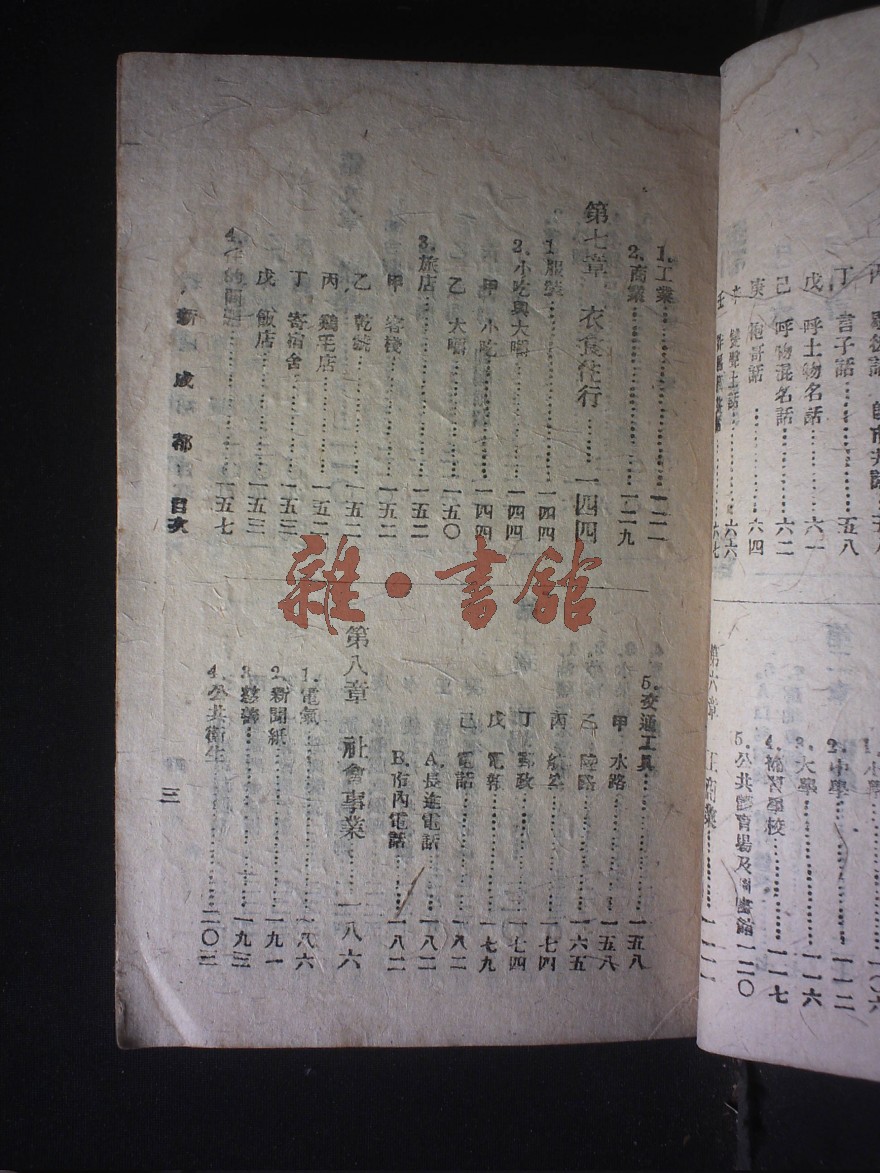 丁 言子話……五八
戊 呼土物名話……六一
己 呼物混名話……六二
庚 袍哥話……六四
六六
六七
2. 中學……一一二
3. 大學……一一六
4. 補習學校……一一七
5. 公共體育場及圖書館……一二〇
第六章 工商業
1. 工業……一二一
2. 商業……一二九
第七章 衣食住行……一四四
1. 服裝……一四四
2. 小吃與大嚼……一四四
甲 小吃……一四四
乙 大嚼……一五〇
3. 旅店……一五二
甲 客棧……一五二
乙 乾號……一五二
丙 鷄毛店……一五二
丁 寄宿舍……一五三
戊 飯店……一五三
4. 住的問題……一五七
5. 交通工具……一五八
甲 水路……一五八
乙 陸路……一六五
丙 航空……一七四
丁 郵政……一七四
戊 電報……一七九
己 電話……一八二
A. 長途電話……一八二
B. 市內電話……一八二
第八章 社會事業……一八六
1. 電氣……一八六
2. 新聞紙……一九一
3. 慈善……一九三
4. 公共衛生……二〇三
新 成都 目次
三
雜·書館